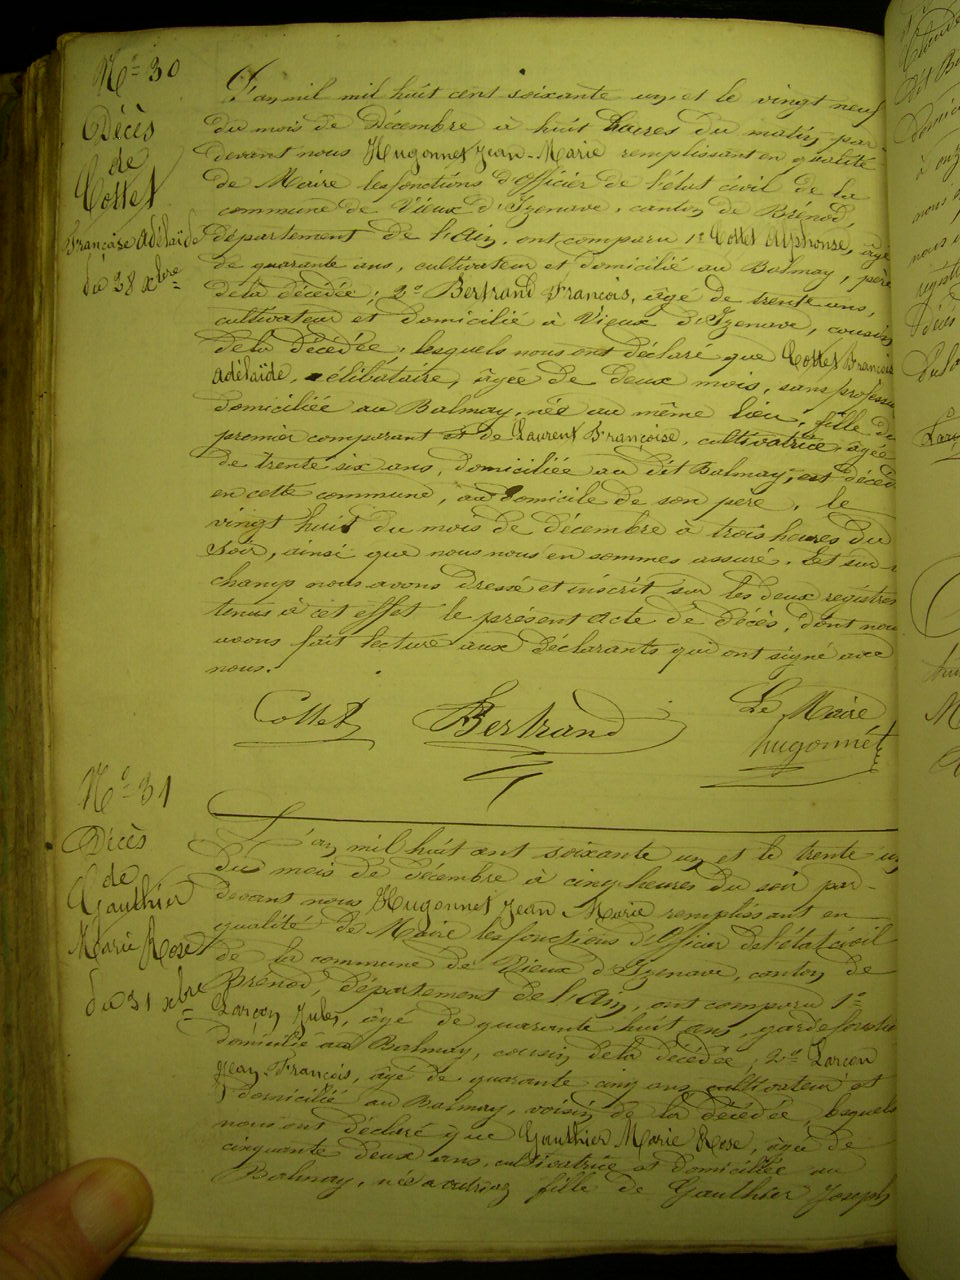 N° 30
Décès
de
Cottet
Françoise Adélaïde
du 28 xbre
L'an mil mil huit cent soixante un et le vingt neuf
du mois de Décembre à huit heures du matin par-
devant nous Hugonnet Jean-Marie remplissant en qualité
de Maire les fonctions d'Officier de l'état civil de la
commune de Vieux d'Izenave, canton de Brénod,
département de l'Ain, ont comparu 1° Cottet Alphonse, âgé
de quarante ans, cultivateur et domicilié au Balmay, père
de la décédée; 2° Bertrand François, âgé de trente ans,
cultivateur et domicilié à Vieux d'Izenave, cousin
de la décédée, lesquels nous ont déclaré que Cottet Françoise
Adélaïde, célibataire, âgée de deux mois, sans profession
domiciliée au Balmay, née au même lieu, fille du
premier comparant et de Laurent Françoise, cultivatrice âgée
de trente six ans, domiciliée au dit Balmay, est décédée
en cette commune, au domicile de son père, le
vingt huit du mois de décembre à trois heures du
soir, ainsi que nous nous en sommes assuré. Et sur-le
champ nous avons dressé et inscrit sur les deux registres
tenus à cet effet le présent acte de décès, dont nous
avons fait lecture aux déclarants qui ont signé avec
nous.
Cottet Bertrand Le Maire
hugonnet
N° 31
Décès
de
Gauthier
Marie Rose
du 31 xbre
L'an mil huit cent soixante un et le trente un
du mois de décembre à cinq heures du soir par-
devant nous Hugonnet Jean Marie remplissant en
qualité de Maire les fonctions d'Officier de l'état civil
de la commune de Vieux d'Izenave, canton de
Brénod, département de l'Ain, ont comparu 1°
Larçon Jules, âgé de quarante huit ans, garde forestier
domicilié au Balmay, cousin de la décédée; 2° Larçon
Jean-François, âgé de quarante cinq ans cultivateur et
domicilié au Balmay, voisin de la décédée, lesquels
nous ont déclaré que Gauthier Marie Rose, âgée de
cinquante deux ans, cultivatrice et domiciliée au
Balmay, née à fille de Gauthier Joseph